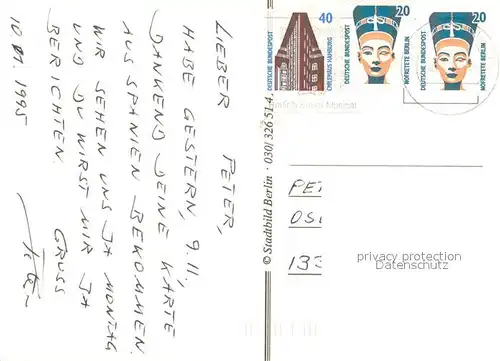 LIEBER PETER,
HABE GESTERN, 9.11.,
DANKEND DEINE KARTE
AUS SPANIEN BEKOMMEN.
WIR SEHEN UNS JA MONTAG
UND DU WIRST MIR JA
BERICHTEN. GRUSS
10.11.1995
© Stadtbild Berlin · 030/ 326 51 4
DEUTSCHE BUNDESPOST
40
CHILEHAUS HAMBURG
DEUTSCHE BUNDESPOST
20
NOFRETETE BERLIN
DEUTSCHE BUNDESPOST
20
NOFRETETE BERLIN
PE
OS
13
www.oldthing.de
Datenschutz